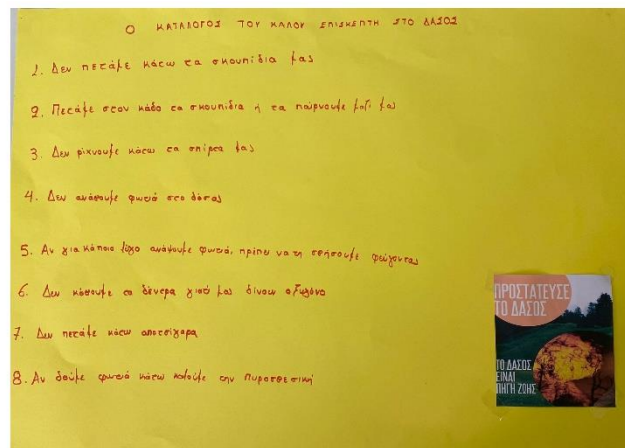 Ο ΚΑΤΑΛΟΓΟΣ ΤΟΥ ΚΑΛΟΥ ΕΠΙΣΚΕΠΤΗ ΣΤΟ ΔΑΣΟΣ
1. Δεν πετάμε κάτω τα σκουπίδια μας
2. Πετάμε στον κάδο τα σκουπίδια ή τα παίρνουμε μαζί μας
3. Δεν ρίχνουμε κάτω τα σπίρτα μας
4. Δεν ανάβουμε φωτιά στο δάσος
5. Αν για κάποιο λόγο ανάψουμε φωτιά, πρέπει να τη σβήσουμε φεύγοντας
6. Δεν κόβουμε τα δέντρα γιατί μας δίνουν οξυγόνο
7. Δεν πετάμε κάτω αποτσίγαρα
8. Αν δούμε φωτιά κάτω καλούμε την Πυροσβεστική
ΠΡΟΣΤΑΤΕΥΣΕ
ΤΟ ΔΑΣΟΣ
ΤΟ ΔΑΣΟΣ
ΕΙΝΑΙ
ΠΗΓΗ ΖΩΗΣ